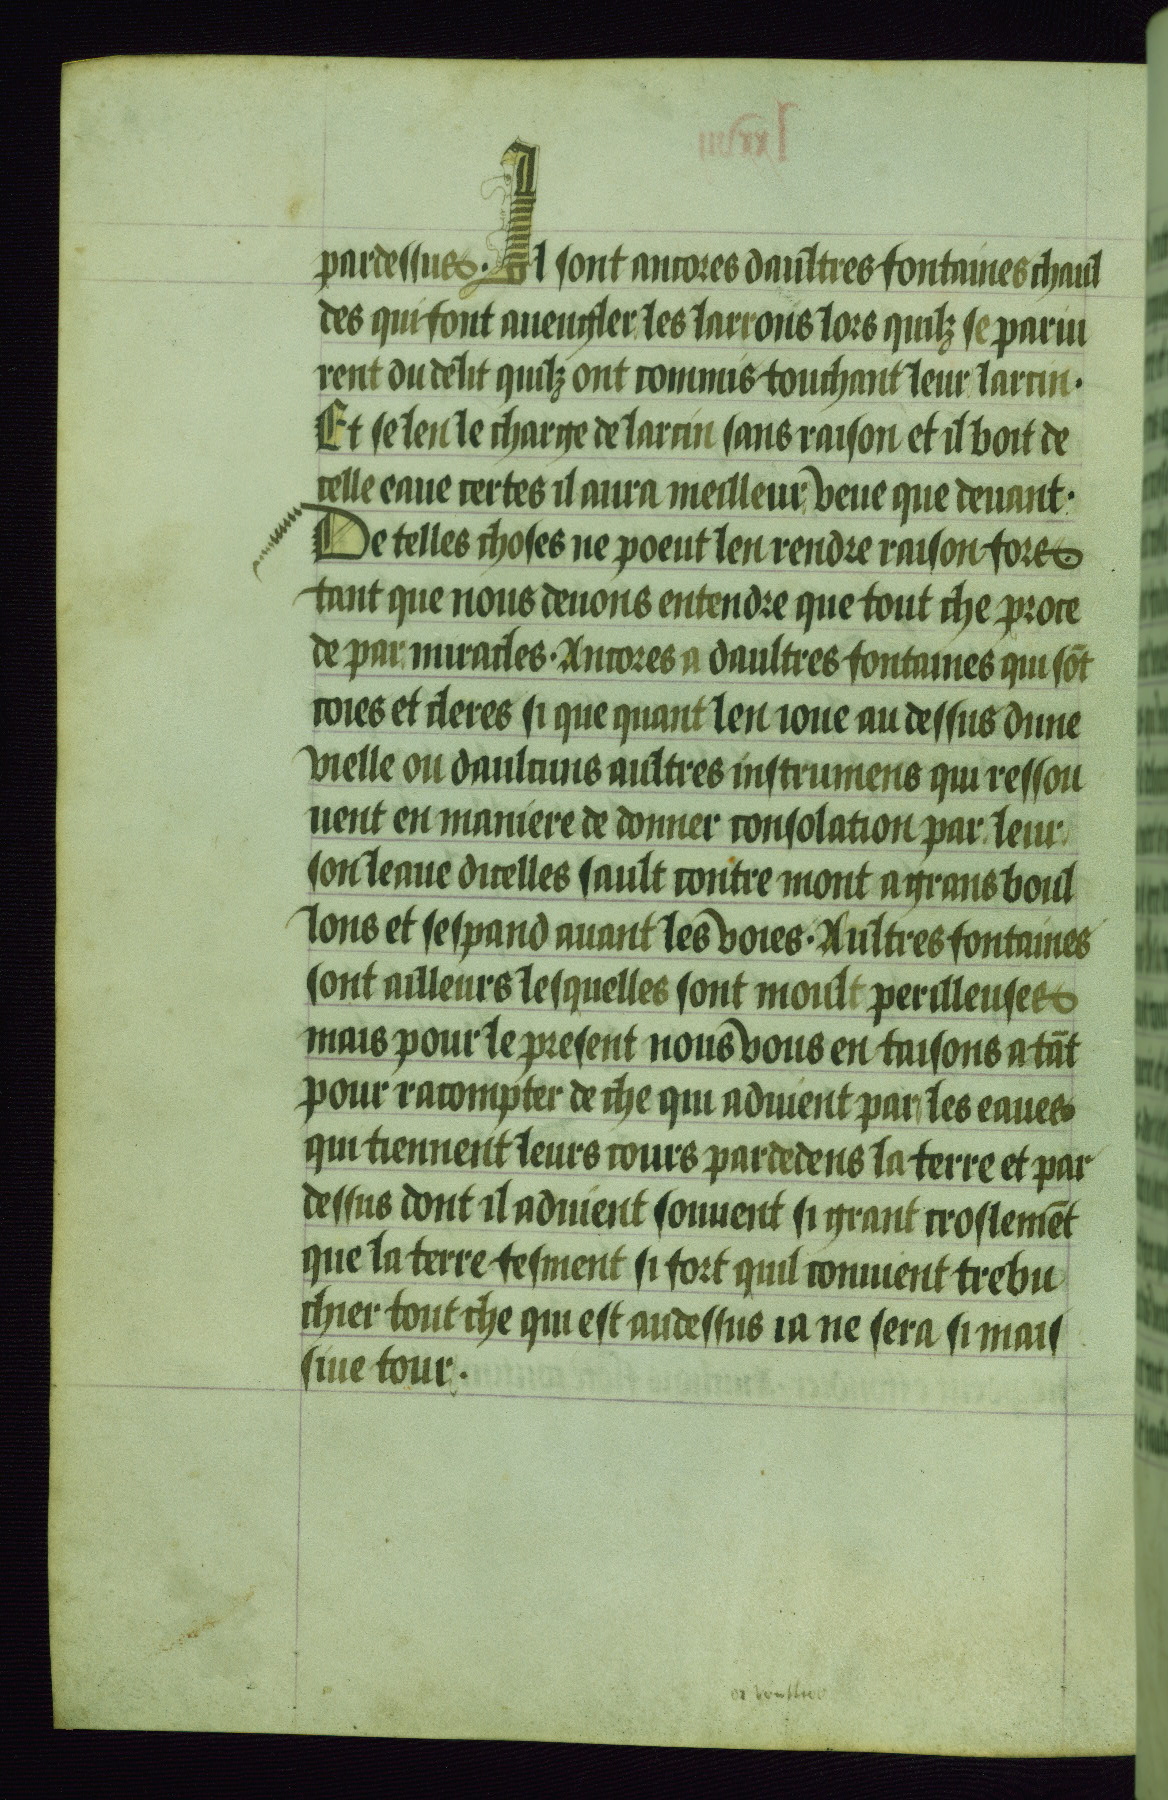 pardessus. Il sont ancores daultres fontaines chaul
des qui font aueugler les larrons lors quilz se pariu
rent du delit quilz ont commis touchant leur larcin.
Et se len le charge de larcin sans raison et il boit de
celle eaue certes il aura meilleur veue que deuant.
De telles choses ne poeut len rendre raison fors
tant que nous deuons entendre que tout che proce
de par miracles. Ancores a daultres fontaines qui sõt
coies et cleres si que quant len ioue au dessus dune
vielle ou daulcuns aultres instrumens qui resson
nent en maniere de donner consolation par leur
son leaue dicelles sault contre mont a grans boul
lons et sespand auant les voies. Aultres fontaines
sont ailleurs lesquelles sont moult perilleuses
mais pour le present nous vous en taisons a tãt
pour racompter de che qui aduient par les eaues
qui tiennent leurs cours pardedens la terre et par
dessus dont il aduient souuent si grant croslemẽt
que la terre sesment si fort quil conuient trebu
chier tout che qui est audessus ia ne sera si mais
siue tour.